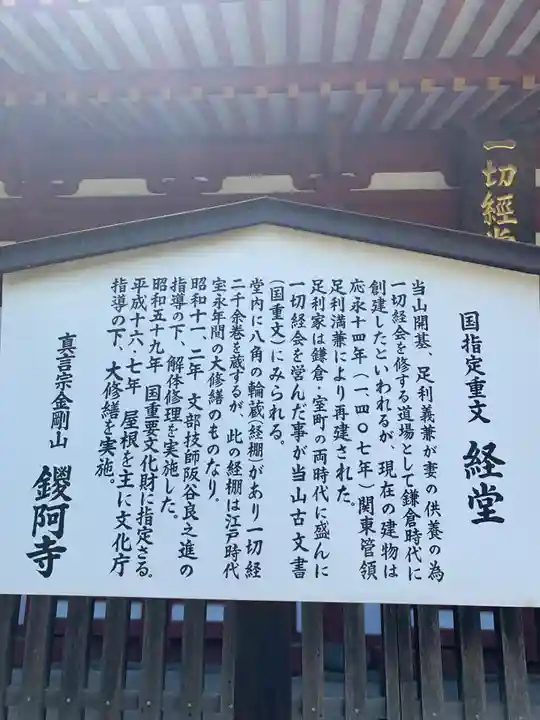 一切経堂
国指定重文 経堂
当山開基、足利義兼が妻の供養の為
一切経会を修する道場として鎌倉時代に
創建したといわれるが、現在の建物は
応永十四年(一、四〇七年)関東管領
足利満兼により再建された。
足利家は鎌倉・室町の両時代に盛んに
一切経会を営んだ事が当山古文書
(国重文)にみられる。
堂内に八角の輪蔵(経棚)があり一切経
二千余巻を蔵するが、此の経棚は江戸時代
宝永年間の大修繕のものなり。
昭和十一、二年 文部技師阪谷良之進の
指導の下、解体修理を実施した。
昭和五十九年 国重要文化財に指定さる。
平成十六、七年 屋根を主に文化庁
指導の下、大修繕を実施。
真言宗金剛山 鑁阿寺